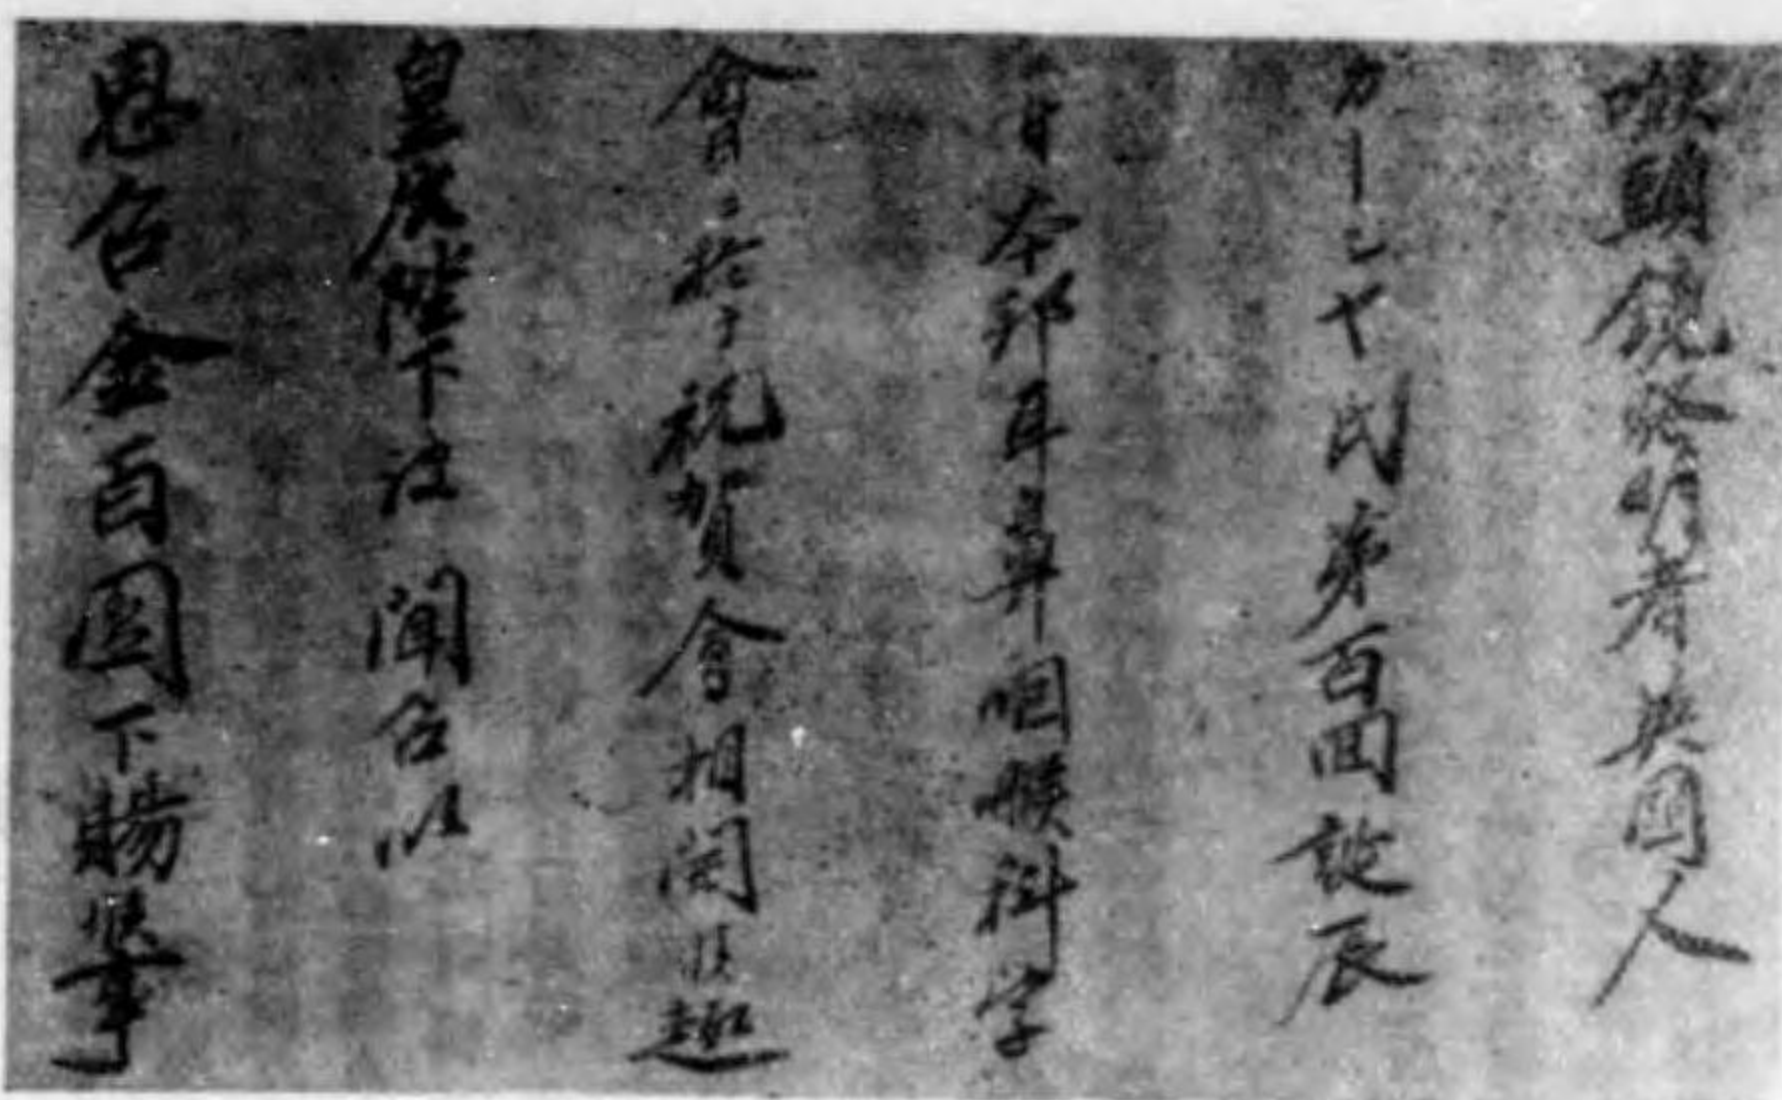 喉頭鏡發明者英國人
ガーシヤ氏第百回誕辰
ニ付本邦耳鼻咽喉科学
會ニ於テ祝賀会相開候趣
皇后陛下被 聞召以
思召金百圓下賜候事